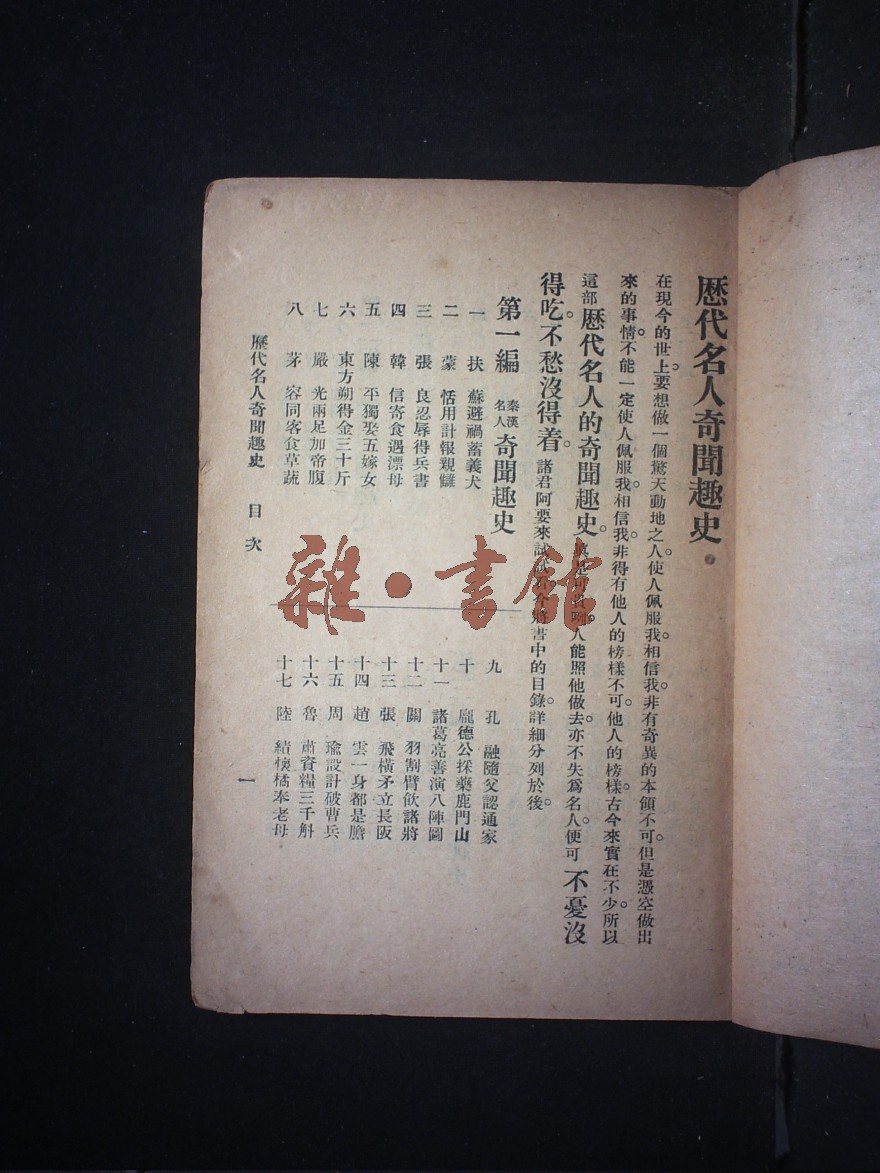 歷代名人奇聞趣史
在現今的世上。要想做一個驚天動地之人。使人佩服我。相信我。非有奇異的本領不可。但是憑空做出
來的事情。不能一定使人佩服我。相信我。非得有他人的榜樣不可。他人的榜樣。古今來實在不少。所以
這部歷代名人的奇聞趣史。真是可貴喲。人能照他做去。亦不失為名人。便可不憂沒
得吃。不愁沒得着。諸君阿要來試試。今將書中的目錄。詳細分列於後。
第一編 秦漢名人奇聞趣史
一 扶蘇避禍蓄義犬
二 蒙恬用計報親讎
三 張良忍辱得兵書
四 韓信寄食遇漂母
五 陳平獨娶五嫁女
六 東方朔得金三十斤
七 嚴光兩足加帝腹
八 茅容同客食草蔬
九 孔融隨父認通家
十 龐德公採藥鹿門山
十一 諸葛亮善演八陣圖
十二 關羽割臂飲諸將
十三 張飛橫矛立長阪
十四 趙雲一身都是膽
十五 周瑜設計破曹兵
十六 魯肅資糧三千斛
十七 陸績懷橘奉老母
歷代名人奇聞趣史 目次
一
雜·書館